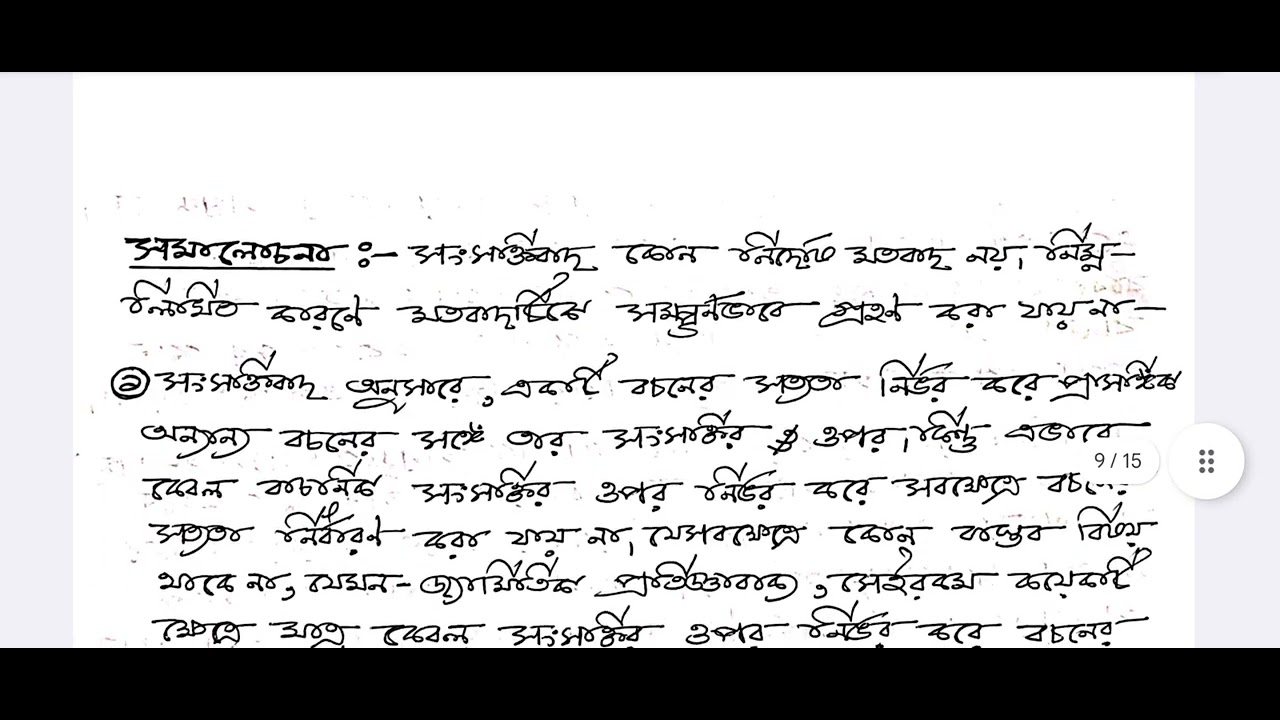 সমালোচনা :- সংসক্তিবাদ কোন নির্দোষ মতবাদ নয়, নিম্ন-
লিখিত কারণে মতবাদটিকে সমপূর্নভাবে গ্রহণ করা যায় না -
① সংসক্তিবাদ অনুসারে, একটি বচনের সত্যতা নির্ভর করে প্রাসঙ্গিক
অন্যান্য বচনের সঙ্গে তার সংসক্তির ওপর, কিন্তু এভাবে
কেবল বাচনিক সংসক্তির ওপর নির্ভর করে সবক্ষেত্রে বচনের
সত্যতা নির্ধারণ করা যায় না, যেসবক্ষেত্রে কোন বাস্তব বিষয়
থাকে না, যেমন- জ্যামিতিক প্রতিজ্ঞাবাক্য, সেইরকম কয়েকটি
ক্ষেত্রে মাত্র কেবল সংসক্তির ওপর নির্ভর করে বচনের
9 / 15